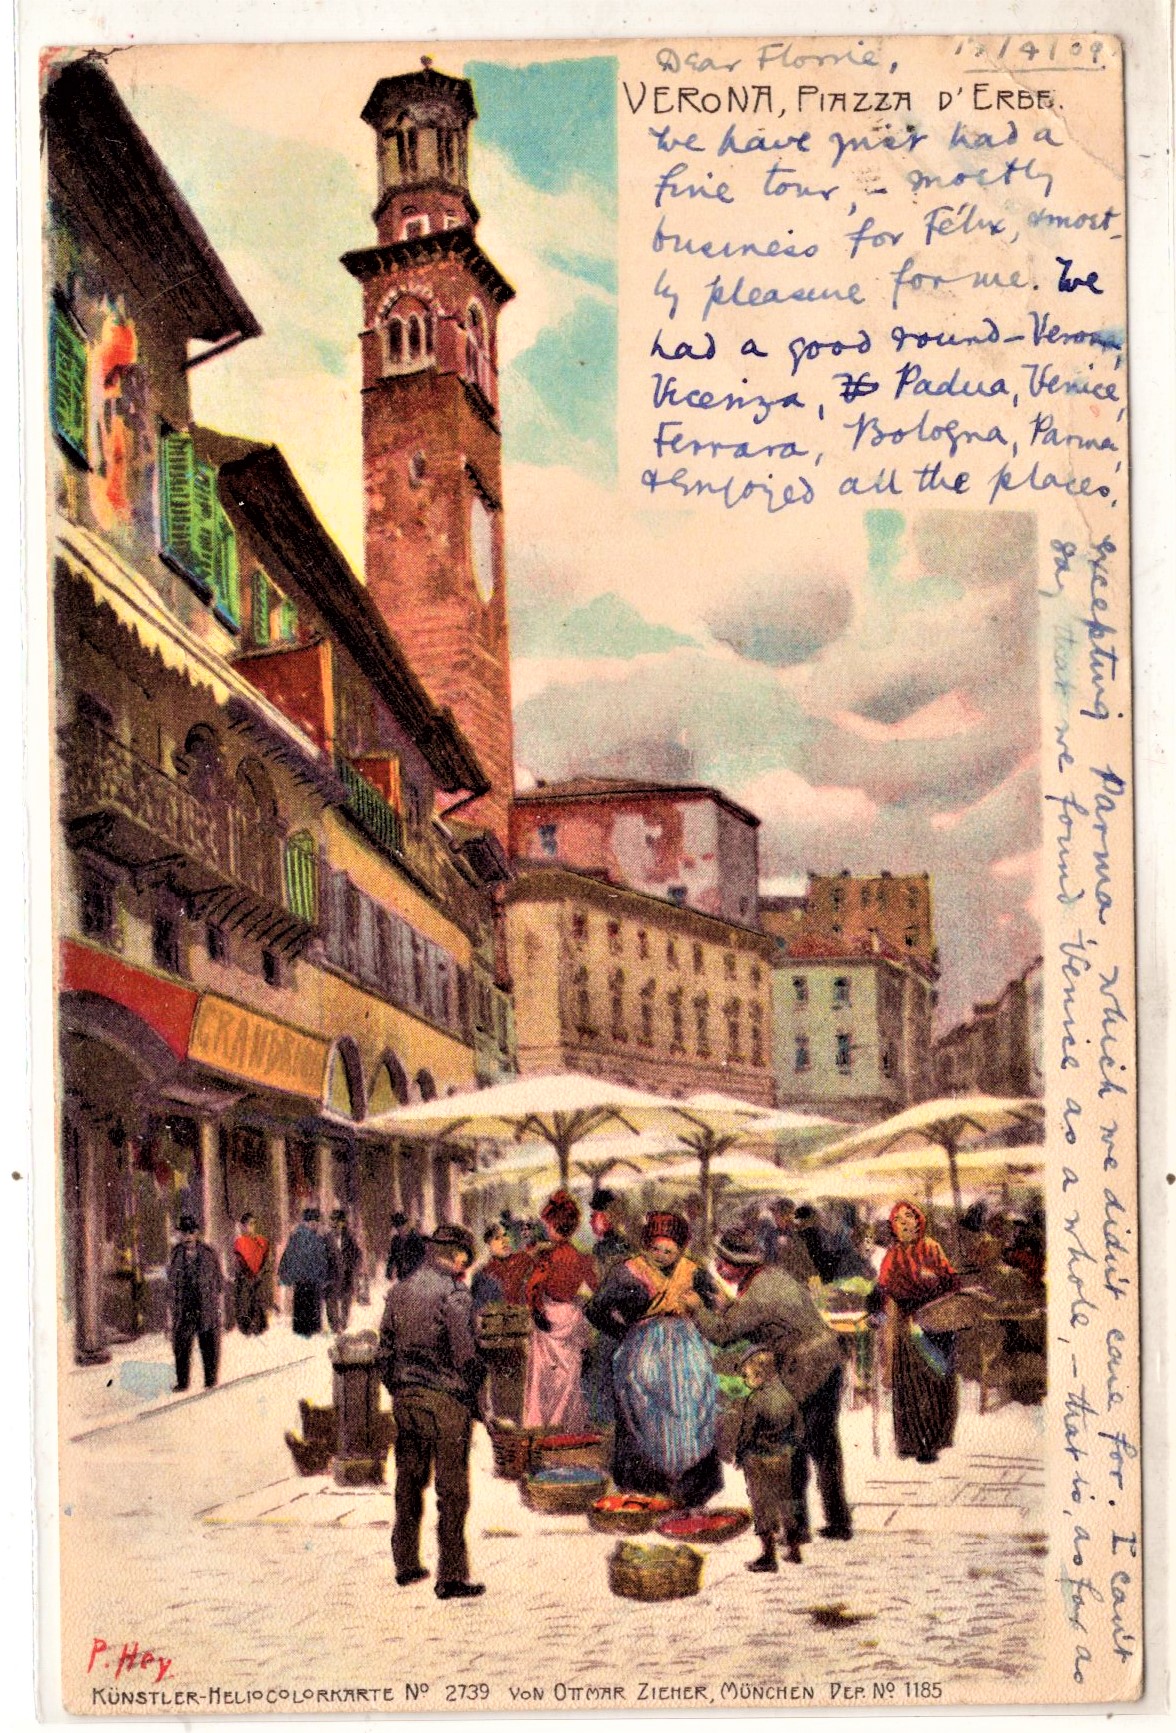 Dear Florrie,
17/4/09.
VERONA, PIAZZA D'ERBE.
We have just had a
fine tour, - mostly
business for Félix, & most-
ly pleasure for me. We
had a good round - Verona,
Vicenza, Padua, Venice,
Ferrara, Bologna, Parma,
& enjoyed all the places,
excepting Parma which we didn't care for. I can't
say that we found Venice as a whole, - that is, as far as
P. Hey
KÜNSTLER-HELIOCOLORKARTE No 2739 VON OTTMAR ZIEHER, MÜNCHEN DEP. No 1185